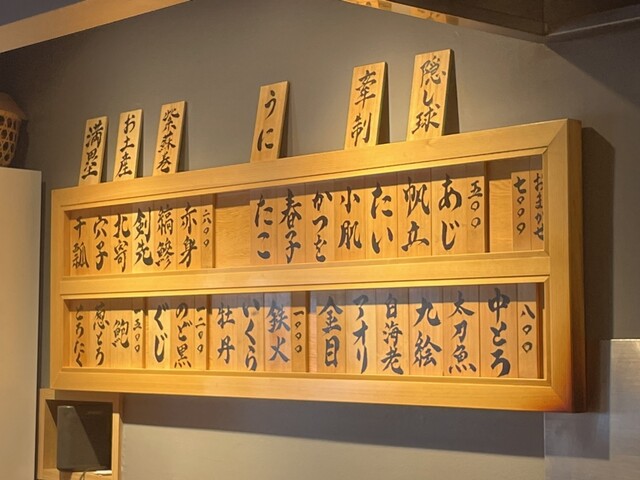 隠し球
牽制
うに
紫蘇巻
お土産
満塁
おまかせ
七〇〇〇
五〇〇
あじ
帆立
たい
小肌
かつを
春子
たこ
六〇〇
赤身
縞鯵
剣先
北寄
穴子
干瓢
八〇〇
中とろ
太刀魚
九絵
白海老
アオリ
金目
一〇〇〇
鉄火
いくら
牡丹
一二〇〇
のど黒
ぐじ
一五〇〇
鮑
葱とろ
とろにく